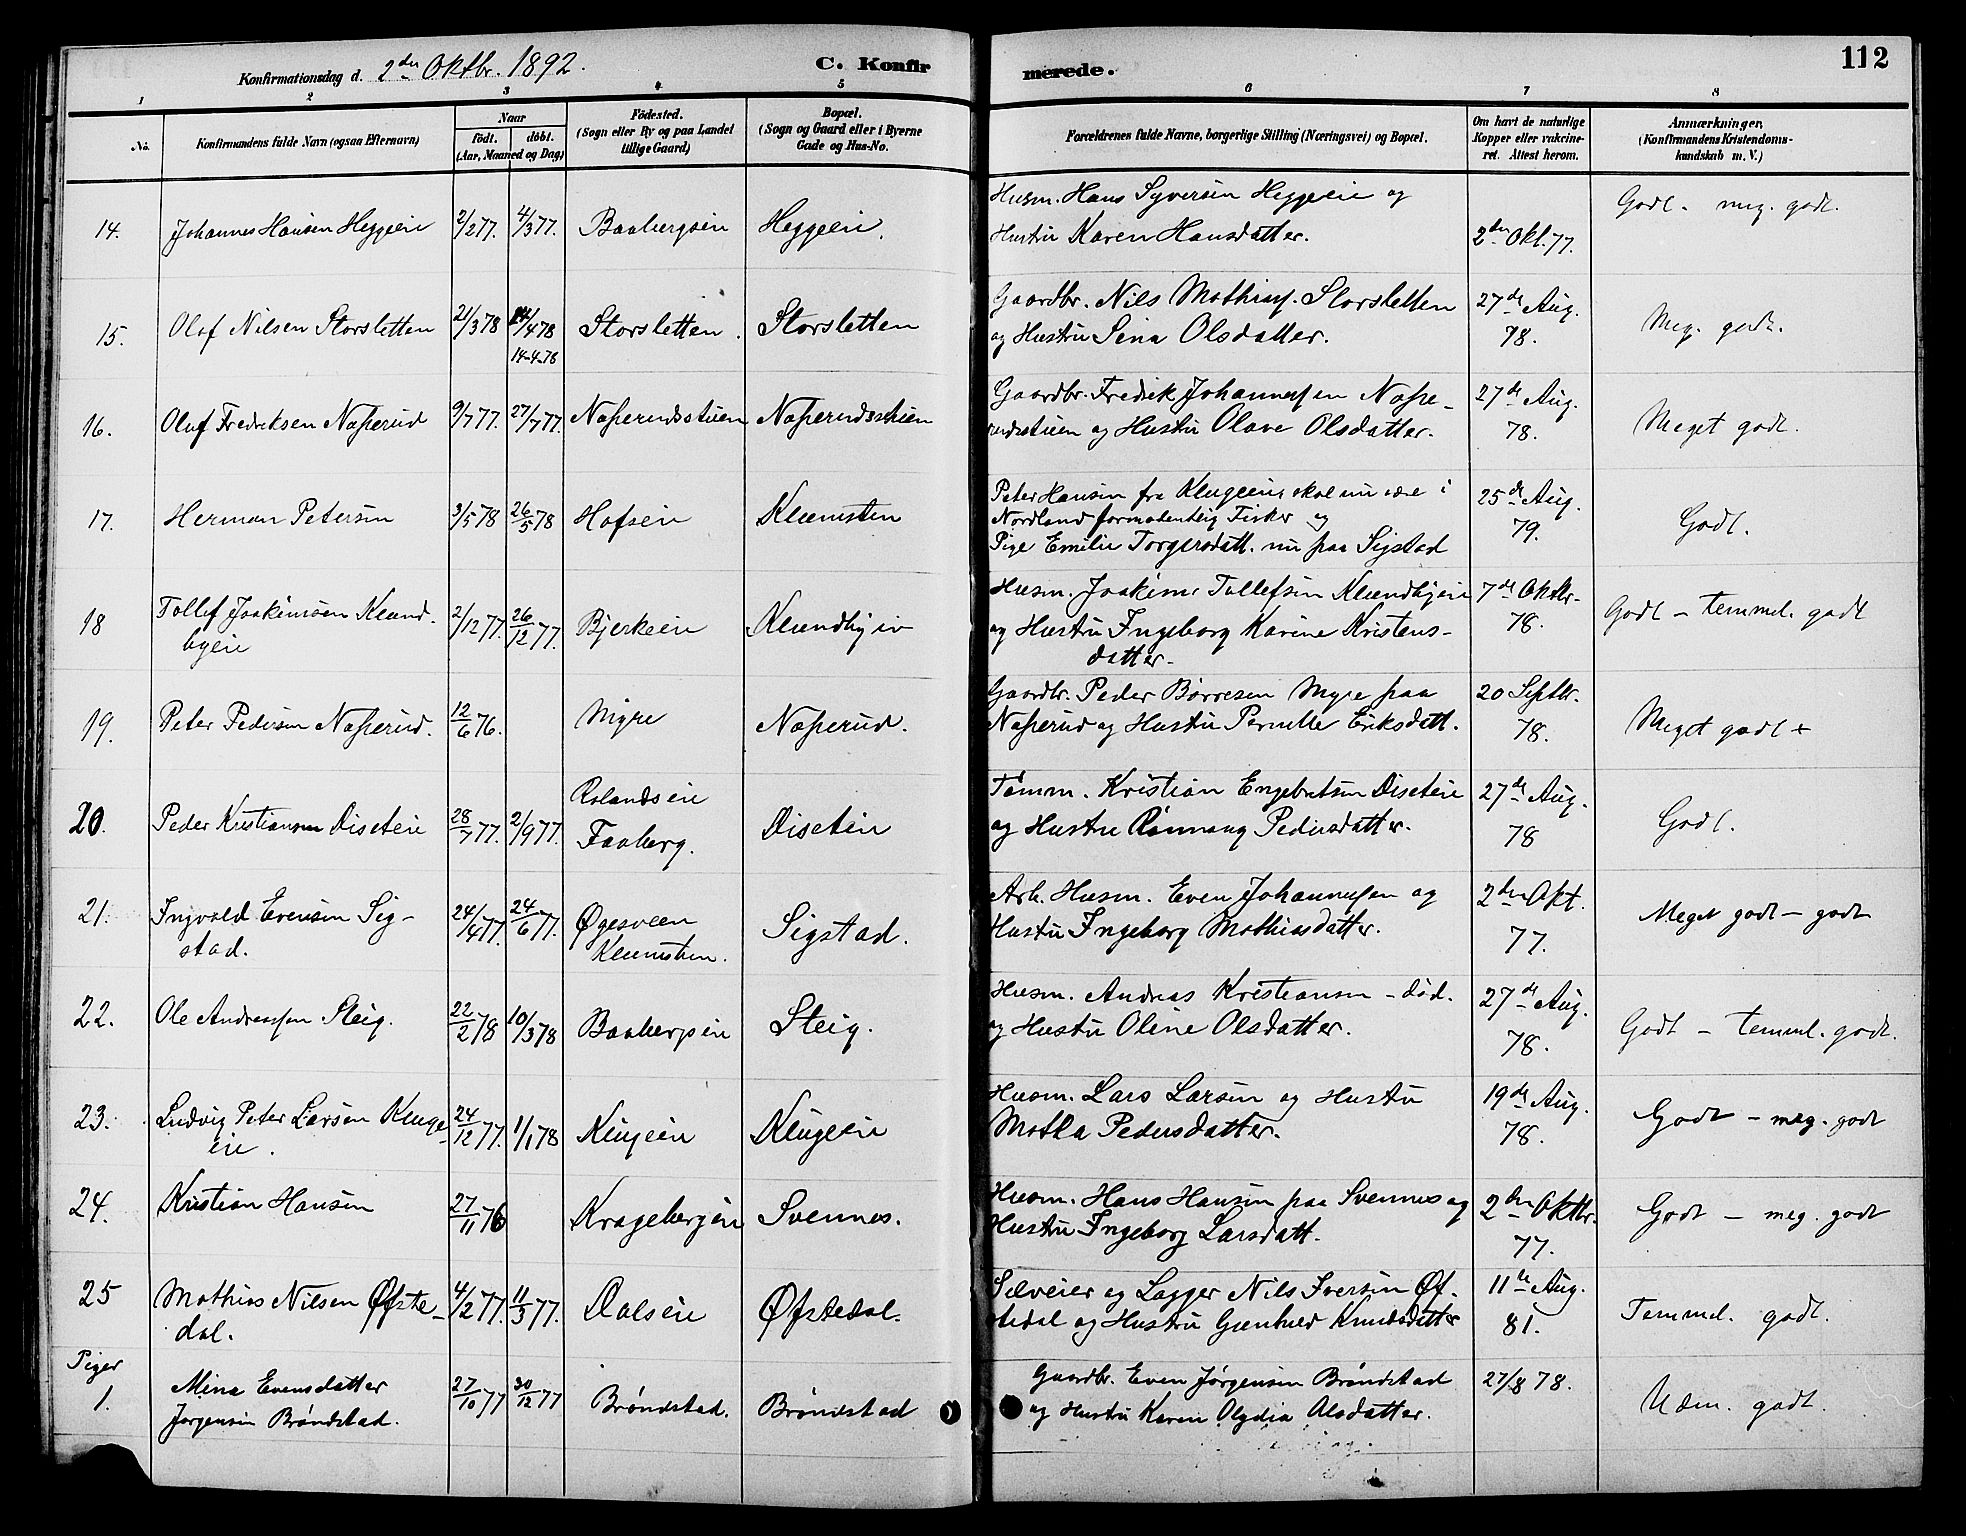 Konfirmationsdag d. 2den Oktbr. 1892.
C. Konfirmerede.
112
1 2 3 4 5 6 7 8
No.
Konfirmandens fulde Navn (ogsaa Efternavn)
Naar
født. døbt.
(Aar, Maaned og Dag)
Fødested.
(Sogn eller By og paa Landet
tillige Gaard)
Bopæl.
(Sogn og Gaard eller i Byerne
Gade og Hus-No.
Forældrenes fulde Navne, borgerlige Stilling (Næringsvei) og Bopæl.
Om havt de naturlige
Kopper eller vakcine-
ret. Attest herom.
Anmærkninger,
(Konfirmandens Kristendoms-
kundskab m. V.)
14. Johannes Hansen Heggeeie 2/2 77. 4/3 77. Baabergseie Heggeeie.
Husm. Hans Syversen Heggeeie og
Hustru Karen Hansdatter. 2den Okt. 77. Godt. meg. godt.
15. Olaf Nilsen Storsletten 21/3 78 14/4 78 Storsletten. Storsletten
14-4-78
Gaardbr. Nils Mathias. Storsletten
og Hustru Sina Olsdatter. 27de Aug.
78. Meg. godt.
16. Oluf Fredriksen Nasserud 9/7 77. 27/7 77. Nasserudsstuen Nasserudsstuen
Gaardbr. Fredrik Johannessen Nasse-
rudsstuen og Hustru Olave Olsdatter. 27de Aug.
78. Meget godt.
17. Herman Petersen 3/5 78 26/5 78 Hofseie Kluensten
Peter Hansen fra Klugeeie, skal nu være i
Nordland formodentlig Fisker og
Pige Emilie Torgersdatt. nu paa Sigstad 25de Aug.
79. Godt.
18 Tollef Joakimsen Klund-
byeie 2/12 77. 26/12 77. Bjerkeeie Klundbyeie
Husm. Joakim Tollefsen Klundbyeie
og Hustru Ingeborg Karine Kristens-
datter. 7de Oktbr.
78. Godt – temmel. godt
19. Peter Pedersen Nasserud. 12/6 76. Myre Nasserud.
Gaardbr. Peder Børresen Myre paa
Nasserud og Hustru Pernille Eriksdatt. 20 Septbr.
78. Meget godt +
20. Peder Kristiansen Diseteie 28/7 77. 2/9 77. Rolandseie
Faaberg. Diseteie
Tømm. Kristian Engebretsen Diseteie
og Hustru Rønnaug Pedersdatter. 27de Aug.
78 Godt.
21. Ingvald Evensen Sig-
stad. 24/4 77. 24/6 77. Øgesveen
Kluensten. Sigstad.
Arb. Husm. Even Johannessen og
Hustru Ingeborg Mathiasdatter. 2den Okt.
77. Meget godt – godt
22. Ole Andreassen Steig. 22/2 78 10/3 78 Baabergseie Steig.
Husm. Andreas Kristiansen – død.
og Hustru Oline Olsdatter. 27de Aug.
78. Godt – temmel. godt.
23. Ludvig Peter Larsen Kluge-
eie. 24/12 77. 1/1 78 Klugeeie Klugeeie
Husm. Lars Larsen og Hustru
Mathea Pedersdatter. 19de Aug.
78. Godt – meg. godt
24. Kristian Hansen 27/11 76 Kragebergeie Svennes.
Husm. Hans Hansen paa Svennes og
Hustru Ingeborg Larsdatt. 2den Oktbr.
77. Godt – meg. godt
25 Mathias Nilsen Øfste-
dal. 4/2 77. 11/3 77. Dalseie Øfstedal.
Selveier og Lægger Nils Iversen Øf-
stedal og Hustru Gunhild Knudsdatter 11te Aug.
81. Temmel. godt.
Piger
1. Mina Evensdatter
Jørgensen Brøndstad. 27/10 77 30/12 77 Brøndstad. Brøndstad
Gaardbr. Even Jørgensen Brøndstad
og Hustru Karen Olydia Olsdatter. 27/8 78. Udm. godt.